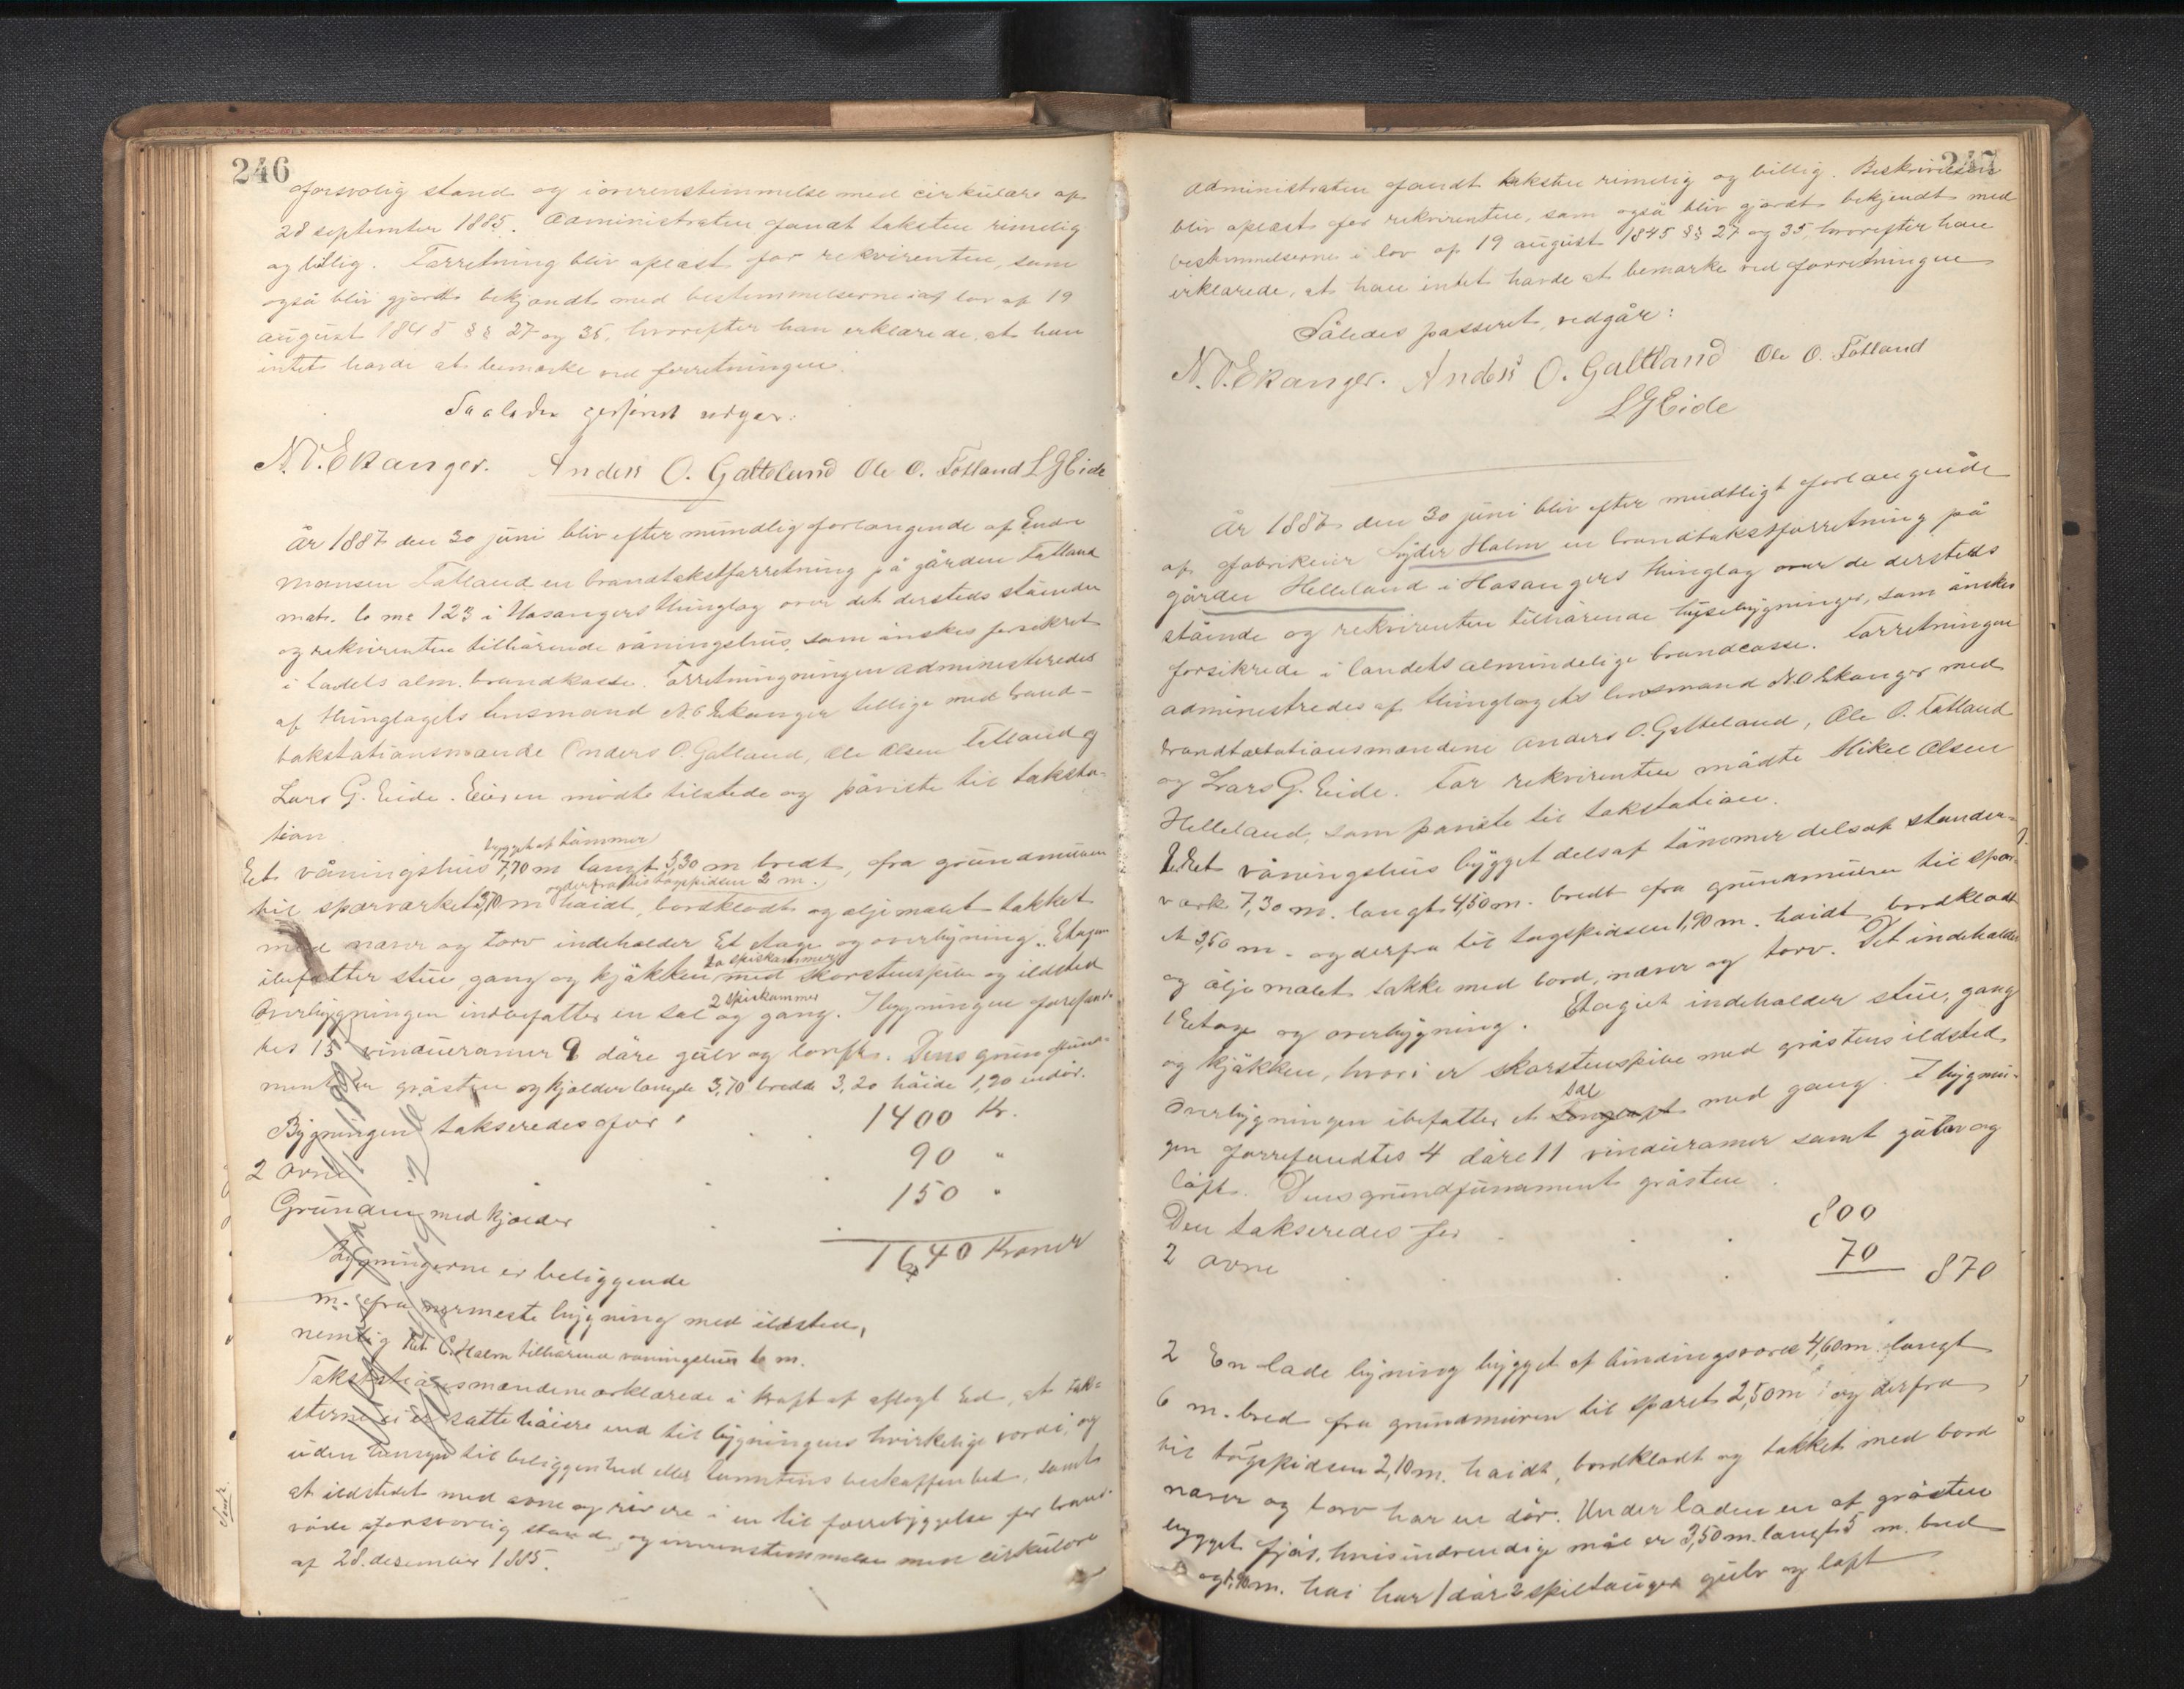 246
forsvarlig stand og i overenstemmelse med cirkulære af
28 september 1885. Administraten fandt taksten rimelig
og billig. Forretning bliv oplæst for rekvirenten, som
også bliv gjordt bekjendt med bestemmelserne i lov af 19
august 1845 §§ 27 og 35, hvorefter han erklærede, at han
intet havde at bemærke ved forretningen.
N. O. Ekanger. Anders O. Galteland Ole O. Totland L G Eide
År 1887 den 30 juni bliv efter mundlig forlangende af Endre
Monsen Totland en brandtakstforretning på gården Totland
mat. lo me 123 i Hosangers thinglag over det dersteds stående
og rekvirenten tilhørende våningshus, som ønskes forsikret
i ladets alm. brandkasse. Forretningningen administreredes
af thinglagets lensmand N. O Ekanger tillige med brand-
takstationsmænde Anders O. Galland, Ole Olsen Totland og
Lars G. Eide. Eieren mødte tilstede og påviste til taksta-
tion
bygget af tømmer
Et våningshus 7,70 m langt 5,30 m bredt, fra grundmuren
og derfra til tagspidsen 2 m.
til sparværket 3,70 m høidt, bordklædt og oljemalet takket
med næver og torv indeholder Et etage og overbygning. Etagen
to spiskammer
ibefatter stue, gang og kjøkken med skorstenspibe og ildsted
2 spiskammer
Overbygningen indbefatter en sal og gang. I bygningen forefand-
tes 15 vinduerammer 9 døre gulv og loft. Dens grundfunda-
ment er gråsten og kjelder længde 3,70 bredde 3,20 høide 1,90 indv.
Bygningen takseredes for 1400 Kr.
2 ovne 90 "
Grunden med kjælder 150 "
1640 Kroner
Bygningerne er beliggende
m. fra nærmeste bygning med ildsted,
nemlig C. Halm tilhørende våningshus 6 m.
Takstationsmændene erklærede i kraft af aflagt Ed, at tak-
sterne ei er satte høiere end til bygningens virkelige værdi, og
uden hensyn til beliggenhed eller tomtens beskaffenhed, samt
at ildstedet med ovne og rør ere i en til forrebyggelse for brand-
våde forsvarlig stand og overenstemmelse med cirkulære
af 28. desember 1885.
247
Administraten fandt taksten rimelig og billig. Beskrivelsen
bliv oplæst for rekvirenten, som også bliv gjordt bekjendt med
bestemmelserne i lov af 19 august 1845 §§ 27 og 35, hvorefter han
erklærede, at han intet havde at bemærke ved forretningen
Således passeret, vedgår:
N. O. Ekanger. Anders O. Galtland Ole O. Totland
L G Eide
År 1887 den 30 juni bliv efter mundtligt forlangende
af fabrikeur Lyder Halm en brandtakstforretning på
gården Helleland i Hosangers thinglag over de dersteds
stående og rekvirenten tilhørende husebygninger, som ønskes
forsikrede i landets almindelige brandcasse. Forretningen
administredes af thinglagets lensmand N. O Ekanger med
brandtaxtationsmændene Anders O. Galteland, Ole O. Totland
og Lars G. Eide. For rekvirenten mødte Mikel Olsen
Helleland, som påviste til takstation.
1. Et våningshus bygget dels af tømmer dels af stander-
værk 7,30 m. langt 4,50 m. bredt fra grundmuren til spar-
et 3,50 m. og derfra til tagspidsen 1,90 m. høidt, bordklædt
og olje malet takke med bord, næver og torv. Det indeholder
1 Etage og overbygning. Etagiet indeholder stue, gang
og kjøkken, hvori er skorstenspibe med gråstens ildsted
sal
Overbygningen ibefatter et med gang. I bygnin-
gen forrefandtes 4 døre 11 vinduramer samt gulv og
loft. Dens grundfunnament gråsten.
Den takseredes for 800
2 ovne 70 870
2 En lade bygning bygget af bindingsværk 4,60 m. langt
6 m. bred fra grundmuren til sparet 2,50 m og derfra
til tagspidsen 2,10 m. høidt, bordklædt og takket med bord
næver og torv har en dør. Under laden en af gråsten
bygget fjøs, hvis indvendige mål er 3,50 m. langt 5 m. bred
og 1,90 m. høi har 1 dør 2 spiltauger gulv og loft